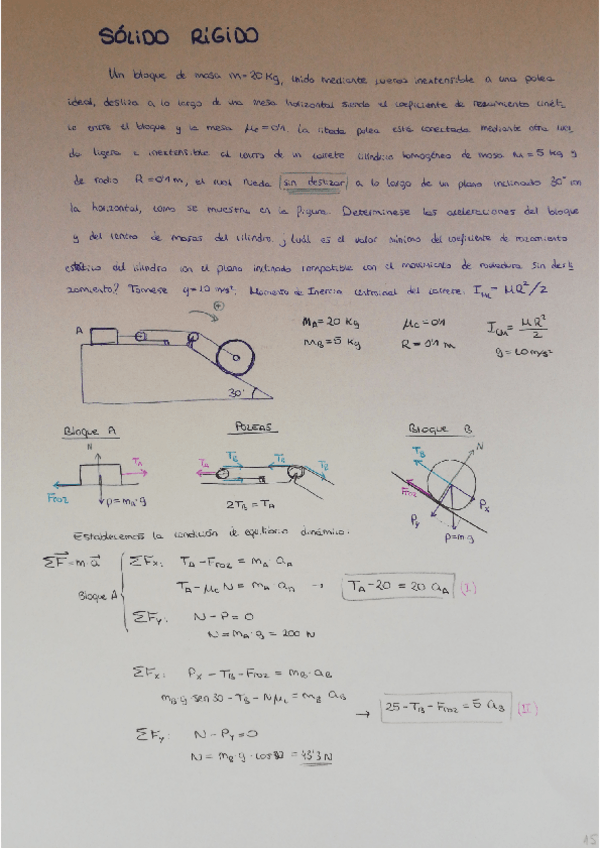 SÓLIDO RÍGIDO
Un bloque de masa m=20 Kg, unido mediante inextensible a una polea
ideal, desliza a lo largo de una mesa horizontal siendo el coeficiente de rozamiento cinéti-
co entre el bloque y la mesa μc=0'1. La citada polea está conectada mediante otra cuer-
da ligera e inextensible al centro de un carrete cilíndrico homogéneo de masa M=5 kg y
de radio R=0'1 m, el cual rueda sin deslizar a lo largo de un plano inclinado 30° con
la horizontal, como se muestra en la figura. Determínese las aceleraciones del bloque
y del centro de masas del cilindro. ¿Cuál es el valor mínimo del coeficiente de rozamiento
estático del cilindro con el plano inclinado compatible con el movimiento de rodadura sin desli-
zamiento? Tómese g=10 m/s². Momento de Inercia central del carrete: I_CM = MR²/2
+
A
30°
M_A=20 Kg μc=0'1 I_CM = MR²/2
M_B=5 Kg R=0'1 m g=10 m/s²
Bloque A POLEAS Bloque B
N
T_A
F_roz
P=m_A·g
T_A T_B T_B T_B
2T_B = T_A
T_B N
F_roz
P_x
P_y
P=m·g
Establecemos la condición de equilibrio dinámico:
ΣF=m·a
Bloque A
ΣFx: T_A - F_roz = m_A · a_A
T_A - μc N = m_A · a_A → T_A - 20 = 20 a_A (I)
ΣFy: N - P = 0
N = m_A · g = 200 N
ΣFx: P_x - T_B - F_roz = m_B · a_B
m_B·g sen 30 - T_B - N μc = m_B a_B → 25 - T_B - F_roz = 5 a_B (II)
ΣFy: N - P_y = 0
N = m_B · g · cos 30 = 43'3 N
15